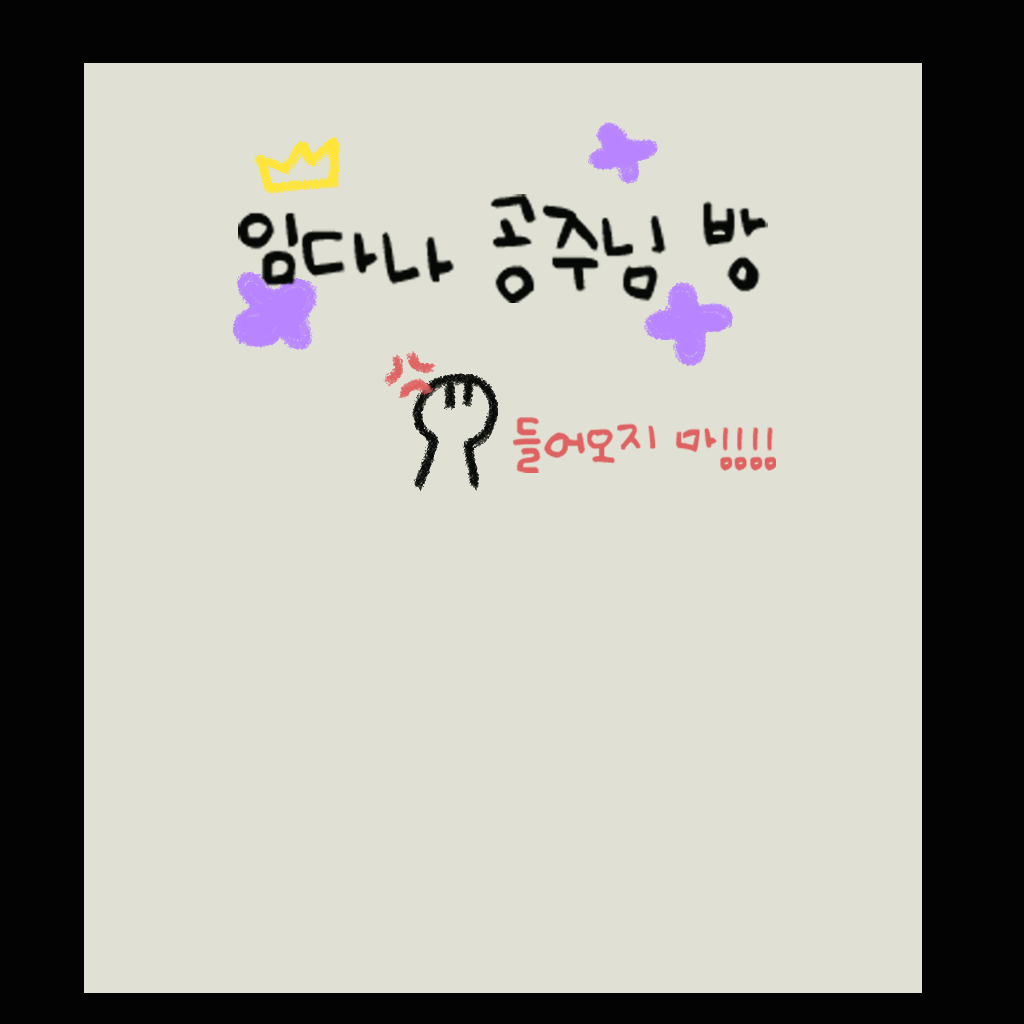 임다나 공주님 방
들어오지 마!!!!